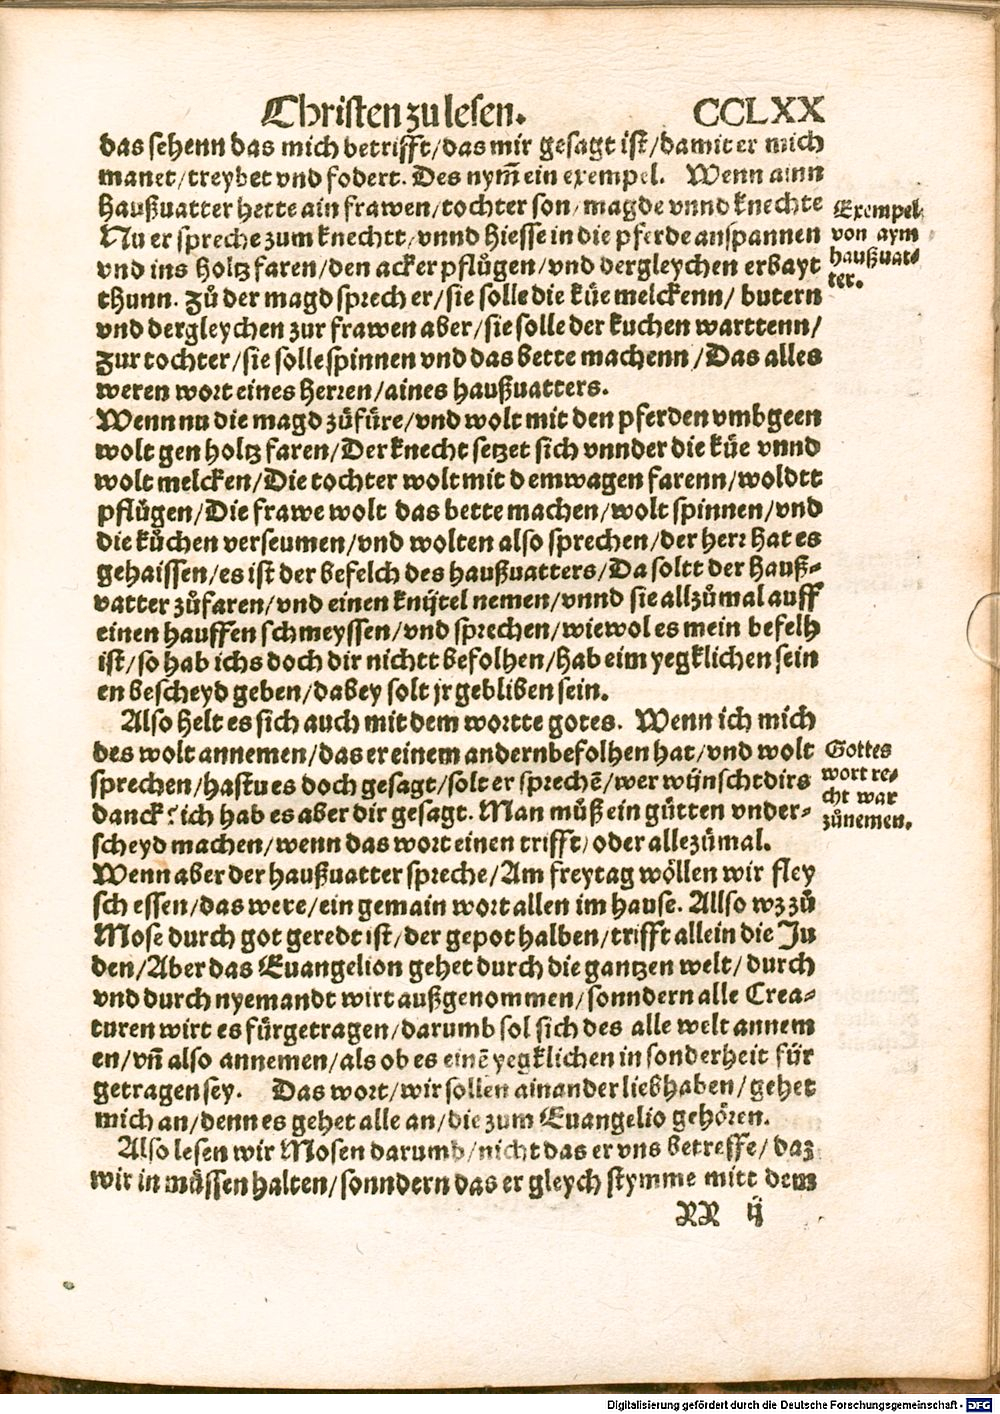 Christen zu lesen. CCLXX
das sehenn das mich betrifft/das mir gesagt ist/damit er mich
manet/treybet vnd fodert. Des nym̃ ein exempel. Wenn ainn
Haußuatter hette ain frawen/tochter son/magde vnnd knechte
Nu er spreche zum knechtt/vnnd hiesse in die pferde anspannen
vnd ins holtz faren/den acker pflůgen/vnd dergleychen erbayt
thunn. Zů der magd sprech er/sie solle die küe melckenn/ butern
vnd dergleychen zur frawen aber/sie solle der kuchen warttenn/
Zur tochter/sie solle spinnen vnd das bette machenn/Das alles
weren wort eines Herren/aines haußuatters.
Exempel
von aym
haußuat⸗
ter.
Wenn nu die magd zůfüre/vnd wolt mit den pferden vmbgeen
wolt gen holtz faren/Der knecht setzet sich vnnder die küe vnnd
wolt melcken/Die tochter wolt mit dem wagen farenn/woldtt
pflůgen/Die frawe wolt das bette machen/wolt spinnen/vnd
die kůchen verseumen/vnd wolten also sprechen/der herr hat es
gehaissen/es ist der befelch des haußuatters/Da soltt der Hauß⸗
vatter zůfaren/vnd einen knijtel nemen/vnnd sie allzůmal auff
einen hauffen schmeyssen/vnd sprechen/wiewol es mein befelh
ist/so hab ichs doch dir nichtt befolhen/hab eim yegklichen sein
en bescheyd geben/dabey solt jr gebliben sein.
Also helt es sich auch mit dem wortte gotes. Wenn ich mich
des wolt annemen/das er einem andern befolhen hat/vnd wolt
sprechen/hastu es doch gesagt/solt er sprechẽ/wer wijnscht dirs
danck? ich hab es aber dir gesagt. Man můß ein gütten vnder⸗
scheyd machen/wenn das wort einen trifft/oder allezümal.
Gottes
wort re⸗
cht war
zůnemen.
Wenn aber der haußuatter spreche/Am freytag wöllen wir fley
sch essen/das were/ein gemain wort allen im hause. Allso wz zů
Mose durch got geredt ist/der gepot halben/trifft allein die Ju
den/Aber das Euangelion gehet durch die gantzen welt/durch
vnd durch nyemandt wirt außgenommen/sonndern alle Crea⸗
turen wirt es fürgetragen/darumb sol sich des alle welt annem
en/vñ also annemen/als ob es einẽ yegklichen in sonderheit für
getragen sey. Das wort/wir sollen ainander lieb haben/gehet
mich an/denn es gehet alle an/die zum Euangelio gehören.
Also lesen wir Mosen darumb/nicht das er vns betreffe/daz
wir in müssen halten/sonndern das er gleych stymme mitt dem
RR ij
Digitalisierung gefördert durch die Deutsche Forschungsgemeinschaft - DFG